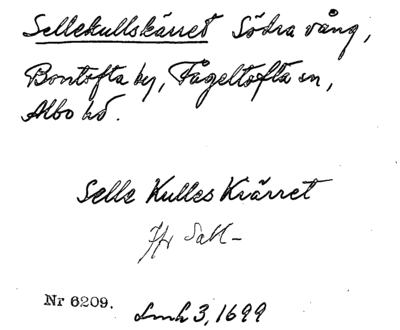 Sellekullskärret Södra vång,
Bontofta by, Fågeltofta sn,
Albo hd.
Selle Kulles Kiärret
Jfr Sall-
Nr 6209.
Lmh 3, 1699